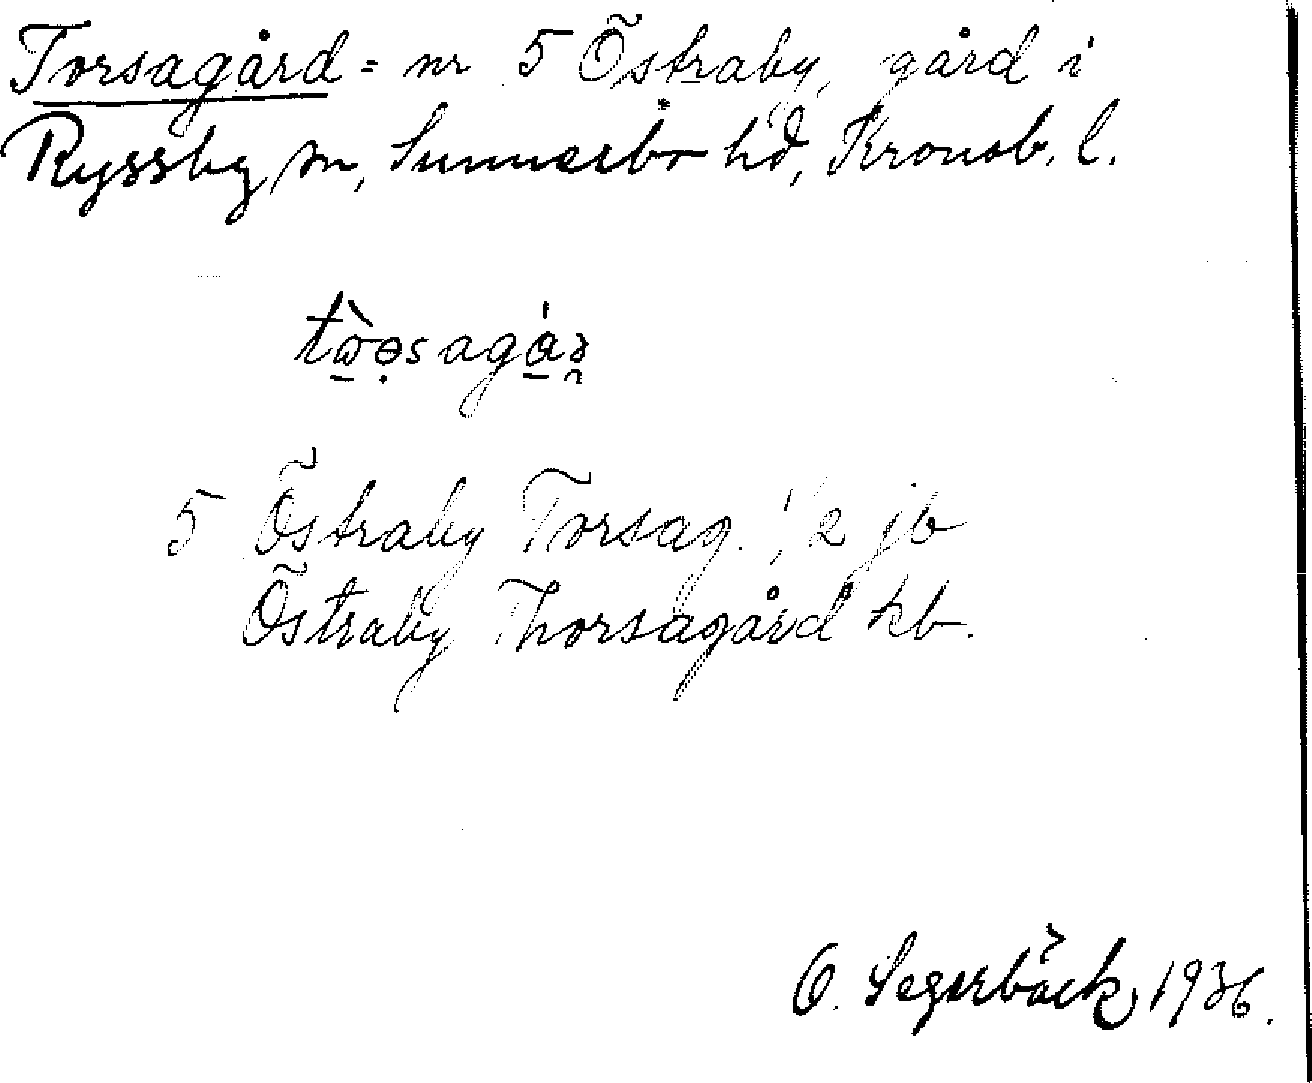 Torsagård = nr 5 Östraby, gård i
Ryssby sn, Sunnerbo hd, Kronob. l.
5 Östraby Torsag. 1/2 jb
Östraby Thorsagård kb.
O. Segerbäck, 1936.